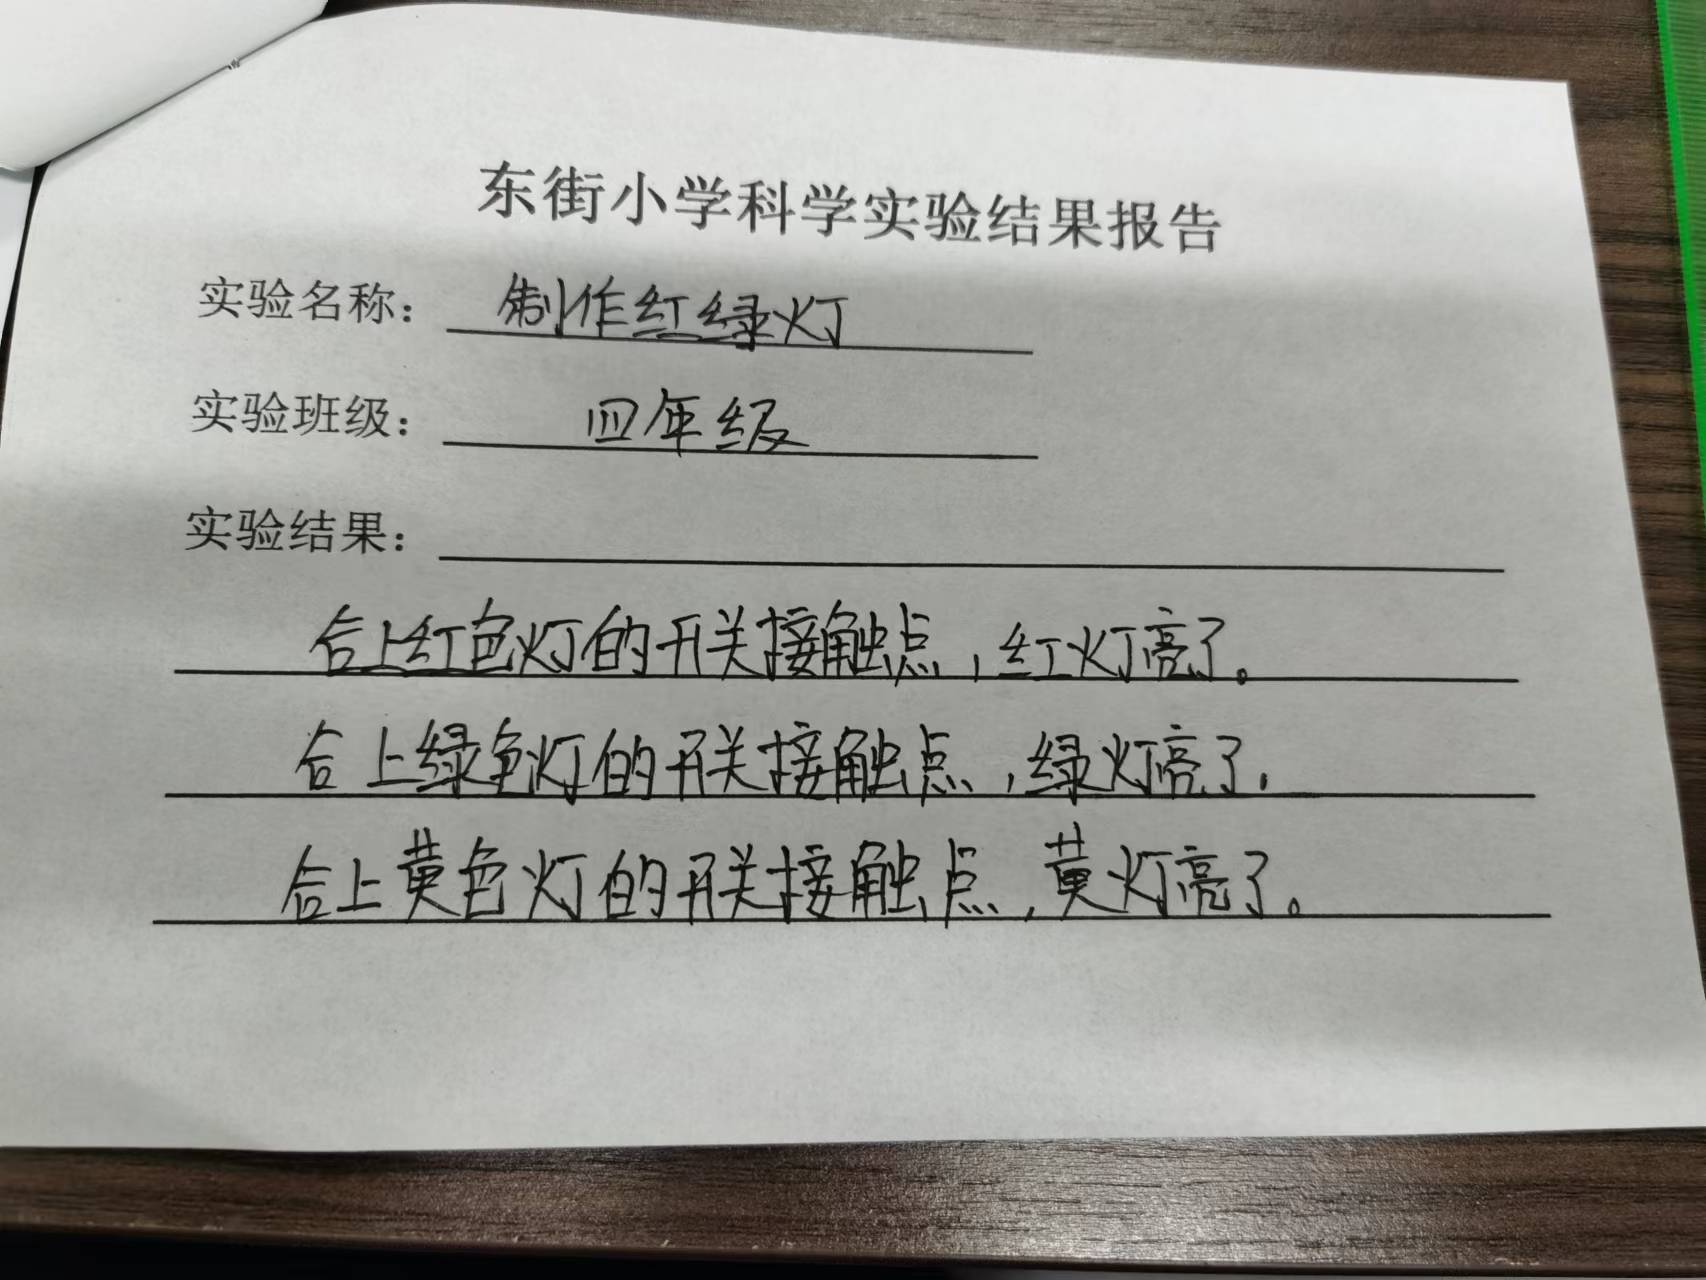 东街小学科学实验结果报告
实验名称：制作红绿灯
实验班级：四年级
实验结果：
合上红色灯的开关接触点，红灯亮了。
合上绿色灯的开关接触点，绿灯亮了.
合上黄色灯的开关接触点，黄灯亮了。